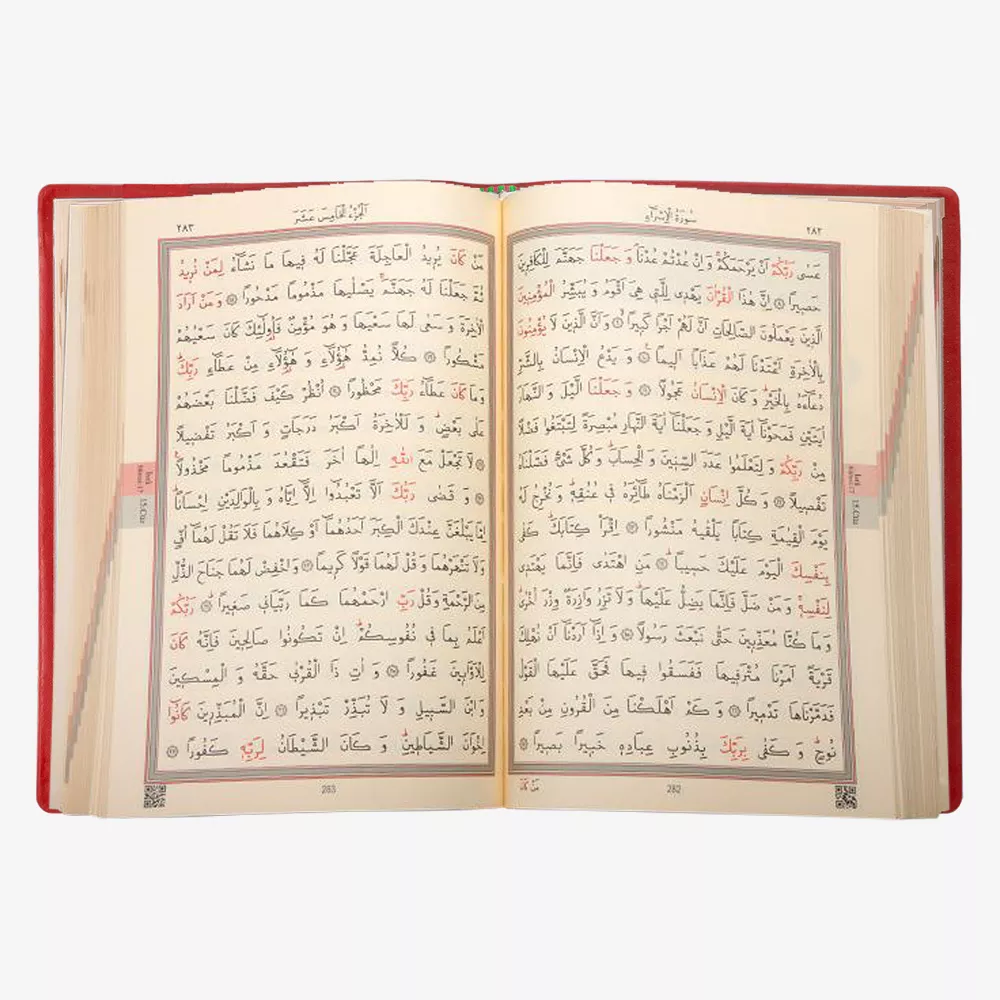 سُورَةُ الْاِسْرَاءِ ٢٨٢
عَسٰى رَبُّكُمْ اَنْ يَرْحَمَكُمْۚ وَاِنْ عُدْتُمْ عُدْنَاۢ وَ جَعَلْنَا جَهَنَّمَ لِلْكَافِر۪ينَ
حَص۪يرًا ٨ اِنَّ هٰذَا الْقُرْاٰنَ يَهْد۪ى لِلَّت۪ى هِىَ اَقْوَمُ وَ يُبَشِّرُ الْمُؤْمِن۪ينَ
الَّذ۪ينَ يَعْمَلُونَ الصَّالِحَاتِ اَنَّ لَهُمْ اَجْرًا كَب۪يرًاۙ ٩ وَاَنَّ الَّذ۪ينَ لَا يُؤْمِنُونَ
بِالْاٰخِرَةِ اَعْتَدْنَا لَهُمْ عَذَابًا اَل۪يمًا۟ ١٠ وَ يَدْعُ الْاِنْسَانُ بِالشَّرِّ
دُعَٓاءَهُ بِالْخَيْرِۜ وَ كَانَ الْاِنْسَانُ عَجُولًا ١١ وَ جَعَلْنَا الَّيْلَ وَ النَّهَارَ
اٰيَتَيْنِ فَمَحَوْنَٓا اٰيَةَ الَّيْلِ وَ جَعَلْنَٓا اٰيَةَ النَّهَارِ مُبْصِرَةً لِتَبْتَغُوا فَضْلًا
مِنْ رَبِّكُمْ وَ لِتَعْلَمُوا عَدَدَ السِّن۪ينَ وَ الْحِسَابَۜ وَ كُلَّ شَىْءٍ فَصَّلْنَاهُ
تَفْص۪يلًا ١٢ وَ كُلَّ اِنْسَانٍ اَلْزَمْنَاهُ طَٓائِرَهُ ف۪ى عُنُقِه۪ۜ وَ نُخْرِجُ لَهُ
يَوْمَ الْقِيٰمَةِ كِتَابًا يَلْقٰيهُ مَنْشُورًا ١٣ اِقْرَاْ كِتَابَكَۜ كَفٰى
بِنَفْسِكَ الْيَوْمَ عَلَيْكَ حَس۪يبًاۜ ١٤ مَنِ اهْتَدٰى فَاِنَّمَا يَهْتَد۪ى
لِنَفْسِه۪ۚ وَ مَنْ ضَلَّ فَاِنَّمَا يَضِلُّ عَلَيْهَاۜ وَ لَا تَزِرُ وَازِرَةٌ وِزْرَ اُخْرٰىۜ
وَ مَا كُنَّا مُعَذِّب۪ينَ حَتّٰى نَبْعَثَ رَسُولًا ١٥ وَ اِذَٓا اَرَدْنَٓا اَنْ نُهْلِكَ
قَرْيَةً اَمَرْنَا مُتْرَف۪يهَا فَفَسَقُوا ف۪يهَا فَحَقَّ عَلَيْهَا الْقَوْلُ
فَدَمَّرْنَاهَا تَدْم۪يرًا ١٦ وَ كَمْ اَهْلَكْنَا مِنَ الْقُرُونِ مِنْ بَعْدِ
نُوحٍۜ وَ كَفٰى بِرَبِّكَ بِذُنُوبِ عِبَادِه۪ خَب۪يرًا بَص۪يرًا ١٧
مَنْ كَانَ
282
اَلْجُزْءُ الْخَامِسَ عَشَرَ ٢٨٣
مَنْ كَانَ يُر۪يدُ الْعَاجِلَةَ عَجَّلْنَا لَهُ ف۪يهَا مَا نَشَٓاءُ لِمَنْ نُر۪يدُ
ثُمَّ جَعَلْنَا لَهُ جَهَنَّمَۚ يَصْلٰيهَا مَذْمُومًا مَدْحُورًا ١٨ وَ مَنْ اَرَادَ
الْاٰخِرَةَ وَ سَعٰى لَهَا سَعْيَهَا وَ هُوَ مُؤْمِنٌ فَاُو۬لٰٓئِكَ كَانَ سَعْيُهُمْ
مَشْكُورًا ١٩ كُلًّا نُمِدُّ هٰٓؤُ۬لَٓاءِ وَ هٰٓؤُ۬لَٓاءِ مِنْ عَطَٓاءِ رَبِّكَۜ
وَ مَا كَانَ عَطَٓاءُ رَبِّكَ مَحْظُورًا ٢٠ اُنْظُرْ كَيْفَ فَضَّلْنَا بَعْضَهُمْ
عَلٰى بَعْضٍۜ وَ لَلْاٰخِرَةُ اَكْبَرُ دَرَجَاتٍ وَ اَكْبَرُ تَفْض۪يلًا
٢١ لَا تَجْعَلْ مَعَ اللّٰهِ اِلٰهًا اٰخَرَ فَتَقْعُدَ مَذْمُومًا مَخْذُولًا۟
٢٢ وَ قَضٰى رَبُّكَ اَلَّا تَعْبُدُٓوا اِلَّٓا اِيَّاهُ وَ بِالْوَالِدَيْنِ اِحْسَانًاۜ
اِمَّا يَبْلُغَنَّ عِنْدَكَ الْكِبَرَ اَحَدُهُمَٓا اَوْ كِلَاهُمَا فَلَا تَقُلْ لَهُمَٓا اُفٍّ
وَلَا تَنْهَرْهُمَا وَ قُلْ لَهُمَا قَوْلًا كَر۪يمًا ٢٣ وَاخْفِضْ لَهُمَا جَنَاحَ الذُّلِّ
مِنَ الرَّحْمَةِ وَ قُلْ رَبِّ ارْحَمْهُمَا كَمَا رَبَّيَان۪ى صَغ۪يرًاۜ ٢٤ رَبُّكُمْ
اَعْلَمُ بِمَا ف۪ى نُفُوسِكُمْۜ اِنْ تَكُونُوا صَالِح۪ينَ فَاِنَّهُ كَانَ
لِلْاَوَّاب۪ينَ غَفُورًا ٢٥ وَ اٰتِ ذَا الْقُرْبٰى حَقَّهُ وَ الْمِسْك۪ينَ
وَ ابْنَ السَّب۪يلِ وَ لَا تُبَذِّرْ تَبْذ۪يرًا ٢٦ اِنَّ الْمُبَذِّر۪ينَ كَانُٓوا
اِخْوَانَ الشَّيَاط۪ينِۜ وَ كَانَ الشَّيْطَانُ لِرَبِّه۪ كَفُورًا ٢٧
283
15.Cüz
15.Cüz